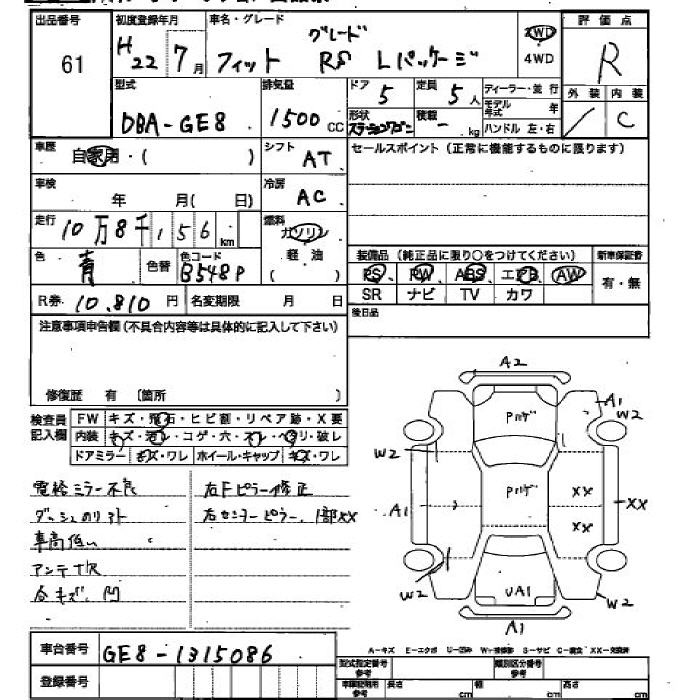 出品番号
初度登録年月
車名・グレード
評価点
61
H22 7月
グレード
フィット RS Lパッケージ
2WD
4WD
R
型式
排気量
ドア
定員
ディーラー・並行
外装
内装
DBA-GE8
1500 CC
5
5人
モデル年式 年
/
C
形状
ステーションワゴン
積載
- kg
ハンドル 左・右
車歴
自家用・( )
シフト
AT
セールスポイント (正常に機能するものに限ります)
車検
年 月( 日)
冷房
AC
走行
10万8千156km
燃料
ガソリン
軽油
色
青
色替
色コード
B548P
装備品 (純正品に限り○をつけてください)
新車保証書
PS、PW、ABS、エアB、AW
有・無
SR ナビ TV カワ
R券 10,810円
名変期限 月 日
後日品
注意事項申告欄 (不具合内容等は具体的に記入して下さい)
修復歴 有 〔箇所 〕
検査員記入欄
FW キズ・飛石・ヒビ割・リペア跡・X要
内装 キズ・・コゲ・穴・・ヘタリ・破レ
ドアミラー キズ・ワレ ホイール・キャップ キズ・ワレ
電格ミラー不良
ダッシュのリアト
車高低い
アンテナ欠
各キズ、凹
右Fピラー修正
右センターピラー、1部XX
A2
A1
W2
Pハゲ
W2
A1
Pハゲ
XX
XX
XX
W2
UA1
W2
A1
A-キズ E-エクボ U-凹み W-補修跡 S-サビ C-腐食 XX-交換済
車台番号
GE8-1315086
登録番号
型式指定番号
参考
類別区分番号
参考
車輌記載用
参考
長さ cm
幅 cm
高さ cm